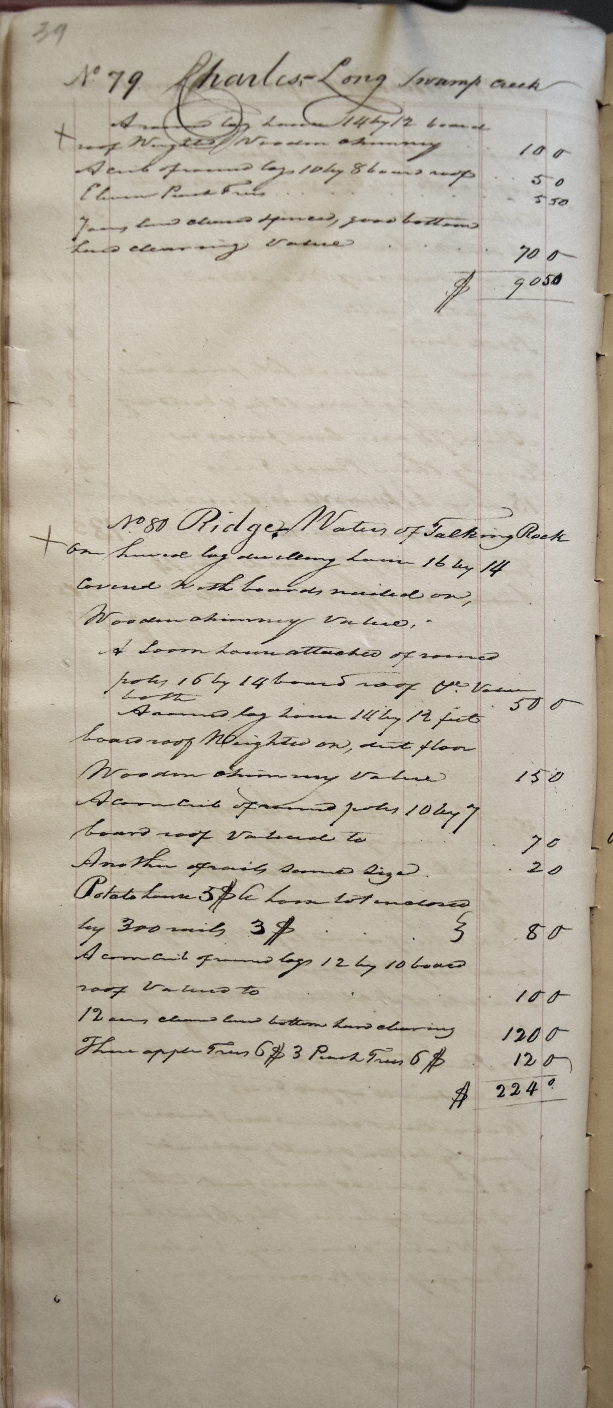 39
No 79 Charles Long Swamp creek
A round log house 14 by 12 board
roof Weighted Wooden chimney 10 0
A crib of round logs 10 by 8 board roof 5 0
Eleven Peach Trees 5 50
7 acres land cleared good bottom
land clearing Value 70 0
$ 90 50
No 80 Ridge, Waters of Talking Rock
One hewed log dwelling house 16 by 14
Covered with boards nailed on,
Wooden chimney Value,
A Loom house attached of round
poles 16 by 14 board roof &c Value
both 50 0
A round log house 14 by 12 feet
board roof Weighted on, dirt floor
Wooden chimney Value 15 0
A corn crib of round poles 10 by 7
board roof Valued to 7 0
Another of rails same size 2 0
Potato house 5$ & horse lot enclosed
by 300 rails 3$ } 8 0
A corn crib of round logs 12 by 10 board
roof Valued to 10 0
12 acres cleared land bottom hard clearing 120 0
Three apple Trees 6$ 3 Peach Trees 6$ 12 0
$ 224 0